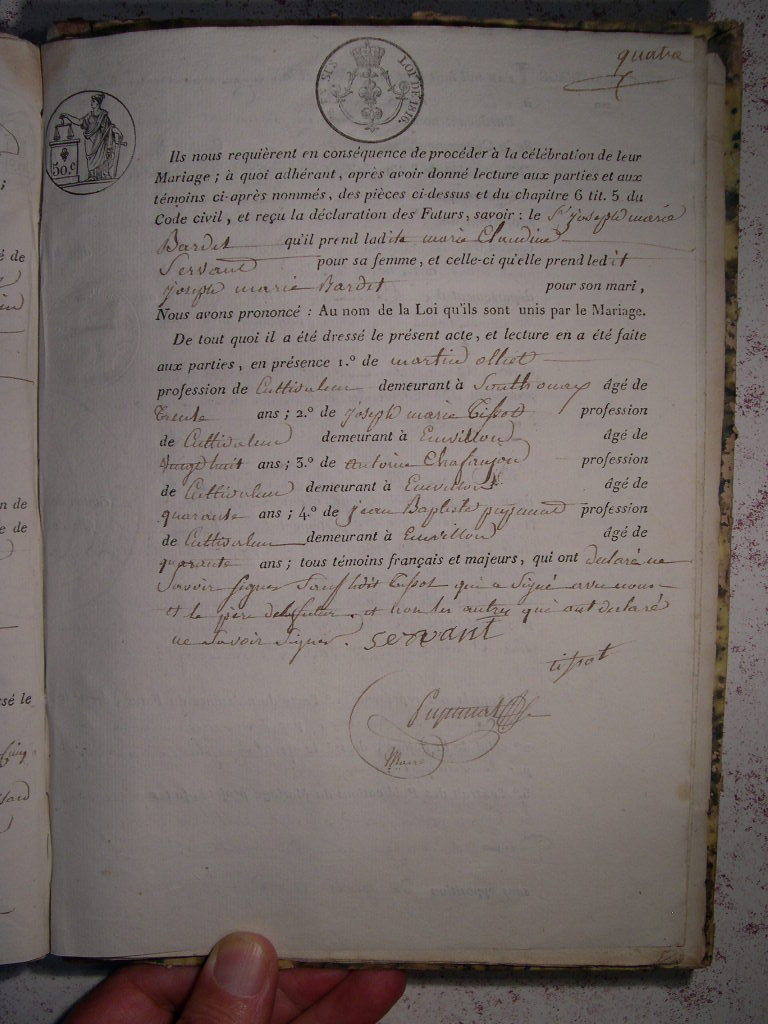 quatre
EN SUS LOI DE 1816.
50.c
Ils nous requièrent en conséquence de procéder à la célébration de leur
Mariage ; à quoi adhérant, après avoir donné lecture aux parties et aux
témoins ci-après nommés, des pièces ci-dessus et du chapitre 6 tit. 5 du
Code civil, et reçu la déclaration des Futurs, savoir : le Sr joseph marie
Bardet qu'il prend ladite marie Claudine
Servant pour sa femme, et celle-ci qu'elle prend ledit
joseph marie Bardet pour son mari,
Nous avons prononcé : Au nom de la Loi qu'ils sont unis par le Mariage.
De tout quoi il a été dressé le présent acte, et lecture en a été faite
aux parties, en présence 1.º de martin
profession de Cultivateur demeurant à âgé de
trente ans ; 2.º de joseph marie Tissot profession
de Cultivateur demeurant à Envillon âgé de
vingt huit ans ; 3.º de Antoine Chafanjon profession
de Cultivateur demeurant à Envillon âgé de
quarante ans ; 4.º de jean Baptiste profession
de Cultivateur demeurant à Envillon âgé de
quarante ans ; tous témoins français et majeurs, qui ont déclaré ne
Savoir signer Sauf ledit Tissot qui a Signé avec nous
et le père et non les autres qui ont déclaré
ne Savoir Signer. servant
tissot
Maire
é de
n de
e de
sé le